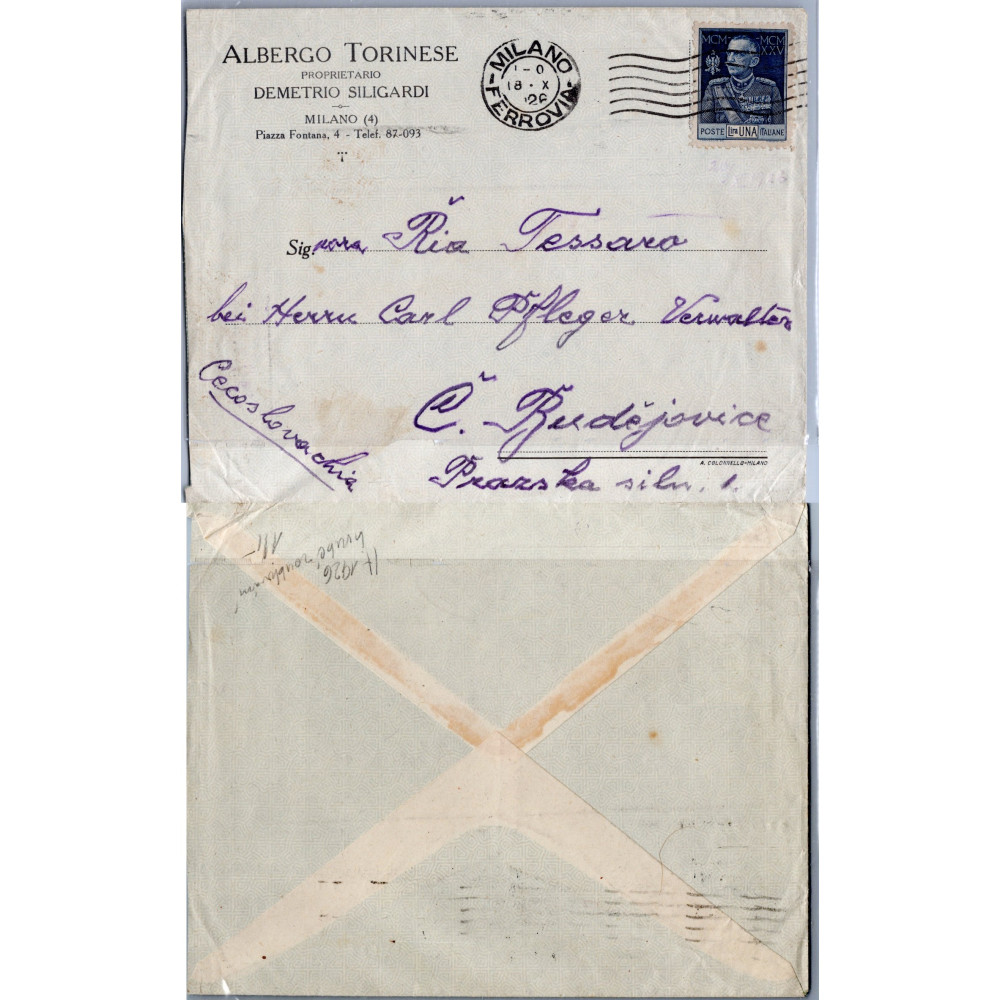 ALBERGO TORINESE
PROPRIETARIO
DEMETRIO SILIGARDI
MILANO (4)
Piazza Fontana, 4 - Telef. 87-093
MILANO
18 · X
'26
FERROVIA
MCM MCM
XXV
POSTE Lira UNA ITALIANE
Sig.nora Řia Tessaro
bei Herrn Carl Pfleger Verwalter
Cecoslovachia
Č. Budějovice
A. COLOMBELLO-MILANO
Prazska siln. 1.
1926
hrubé
11,-